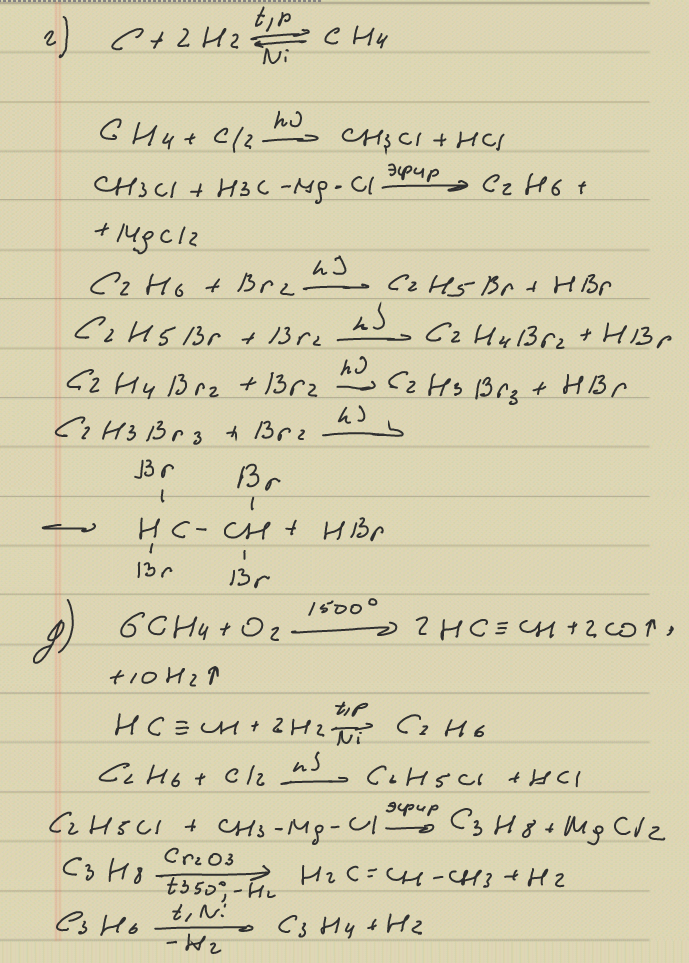 г) C + 2H2 ⇄ (t,p / Ni) CH4
CH4 + Cl2 —hν→ CH3Cl + HCl
CH3Cl + H3C-Mg-Cl —эфир→ C2H6 +
+ MgCl2
C2H6 + Br2 —hν→ C2H5Br + HBr
C2H5Br + Br2 —hν→ C2H4Br2 + HBr
C2H4Br2 + Br2 —hν→ C2H3Br3 + HBr
C2H3Br3 + Br2 —hν→
Br Br
→ HC - CH + HBr
Br Br
д) 6CH4 + O2 —1500°→ 2HC≡CH + 2CO↑,
+10H2↑
HC≡CH + 2H2 —t,p / Ni→ C2H6
C2H6 + Cl2 —hν→ C2H5Cl + HCl
C2H5Cl + CH3-Mg-Cl —эфир→ C3H8 + MgCl2
C3H8 —Cr2O3 / t350°, -H2→ H2C=CH-CH3 + H2
C3H6 —t,Ni / -H2→ C3H4 + H2